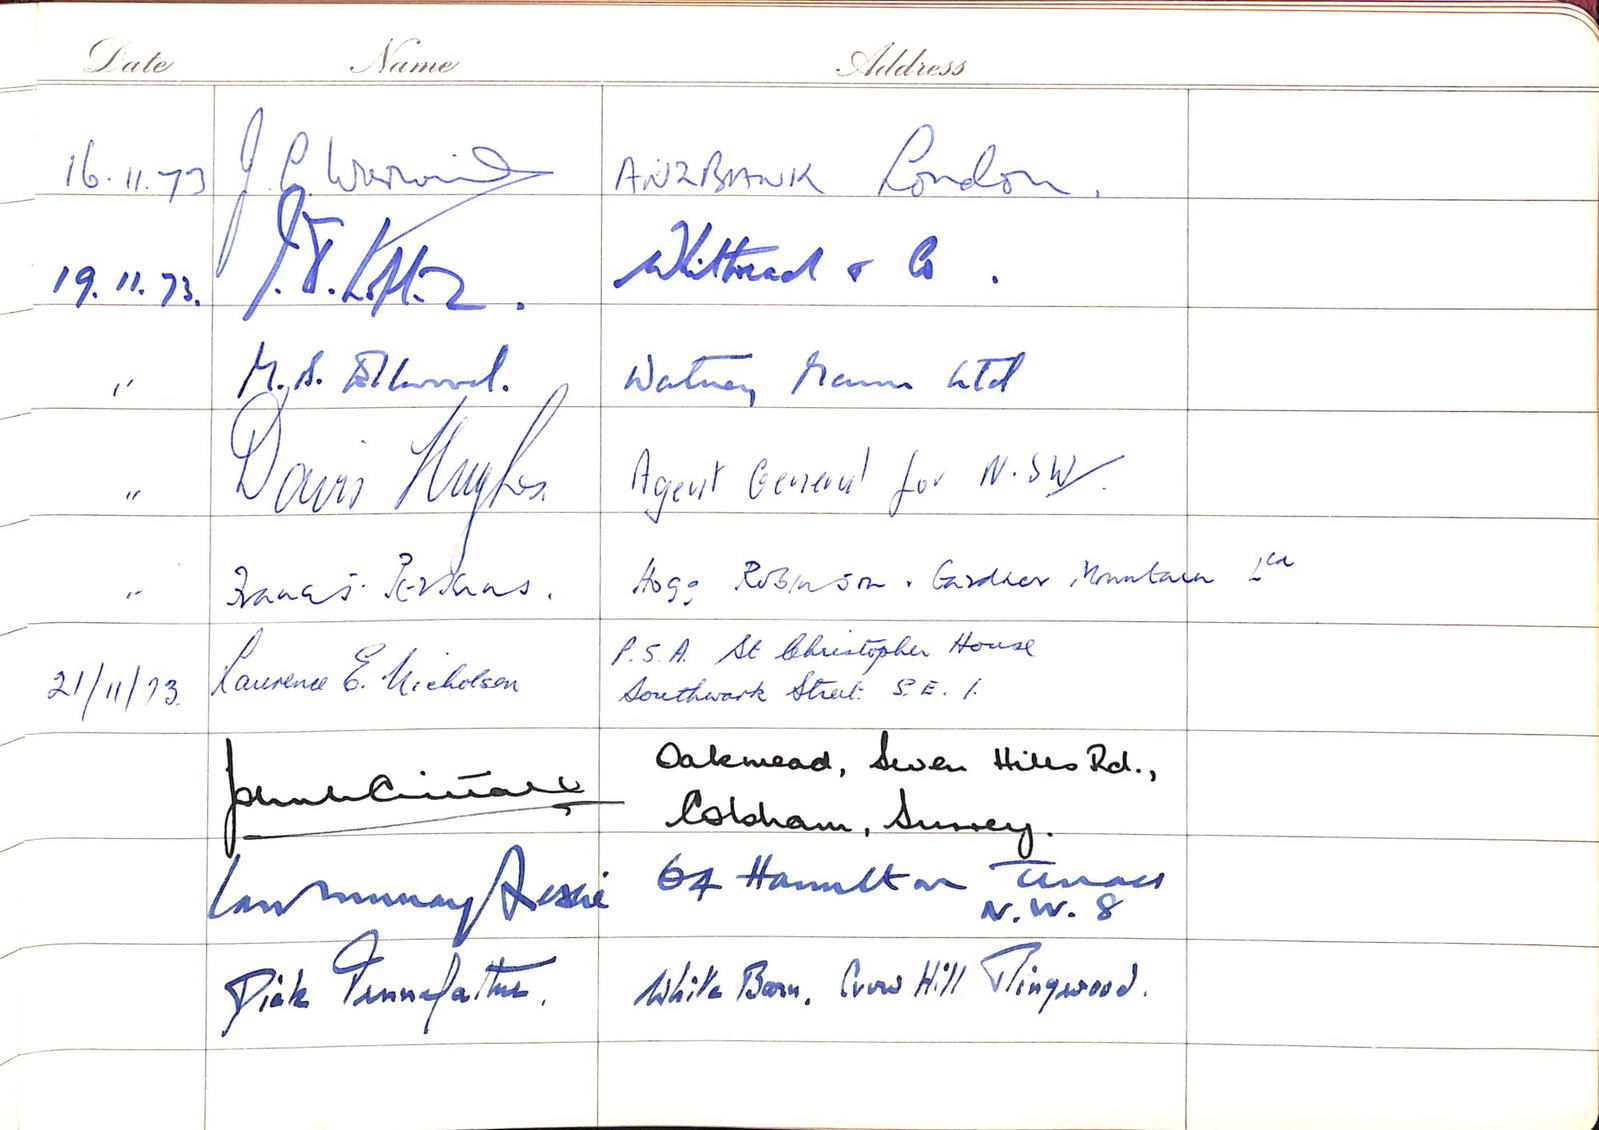 Date Name Address
16.11.73 J. C. ANZ BANK London.
19.11.73. Whitbread & Co.
" M. S. Ellwood. Watney Mann Ltd
" Davis Hughes Agent General for N.S.W.
" Francis Perkins. Hogg Robinson. Gardner Mountain Ltd
21/11/73. Laurence E. Nicholson P.S.A. St Christopher House
Southwark Street. S.E.1.
Oakmead, Seven Hills Rd.,
Cobham, Surrey.
Ian Murray Leslie 64 Hamilton Terrace
N.W.8
Dick Pennefather. White Barn, Crow Hill Ringwood.